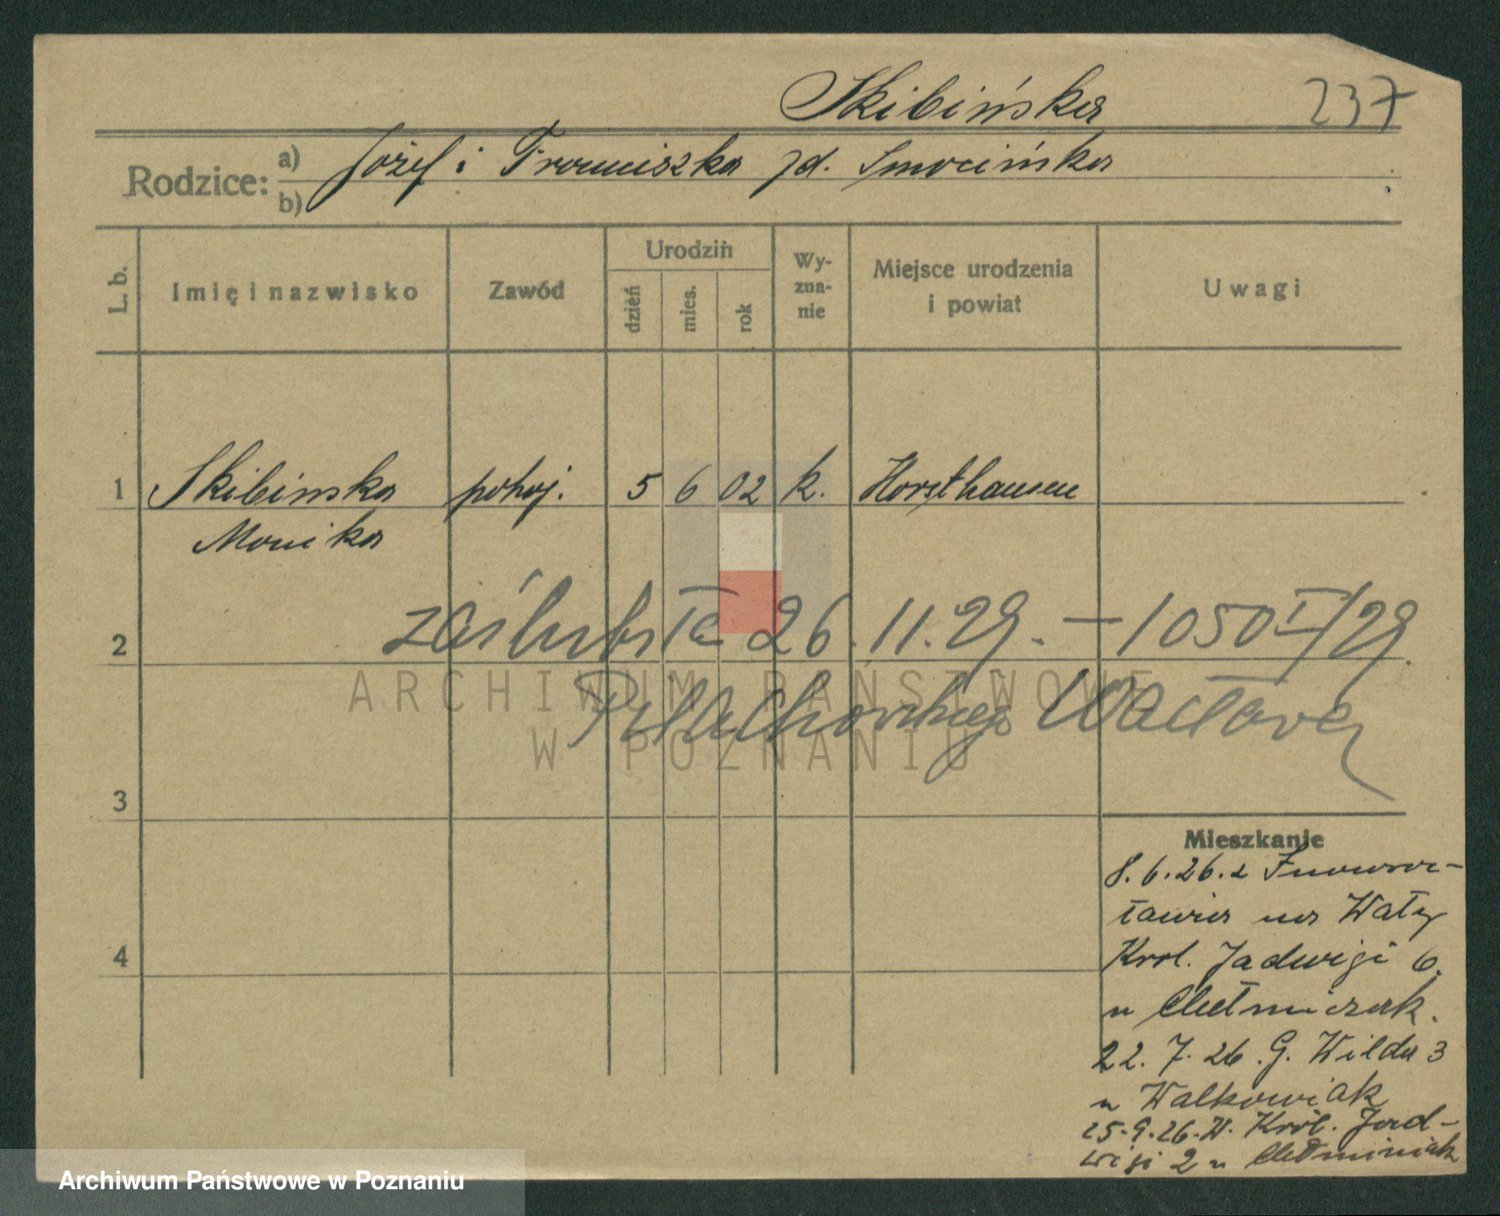 Skibińska 237
Rodzice: a) Józef i Franciszka zd. Smocińska
b)
L. b. Imię i nazwisko Zawód Urodzin dzień mies. rok Wyznanie Miejsce urodzenia i powiat Uwagi
1 Skibinska pokoj. 5 6 02 k. Horsthausen
Monika
2 zaślubiła 26.11.29. – 1050 I/29.
Wacława
ARCHIWUM PAŃSTWOWE
W POZNANIU
3
Mieszkanie
8.6.26. z Inowro-
cławia na Wały
4 Krol. Jadwigi 6.
u Chełminiak.
22. 7. 26. G. Wilda 3
u Walkowiak
25.9.26. W. Król. Jad-
wigi 2 u Chełminiak
Archiwum Państwowe w Poznaniu